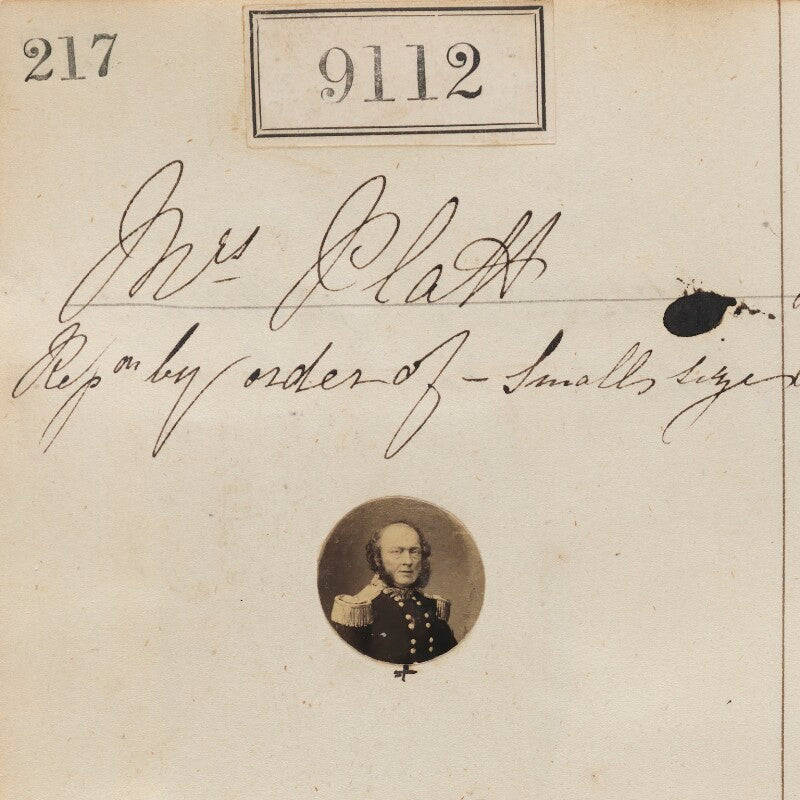 217
9112
Mrs Platt
Repon by order of - Small size